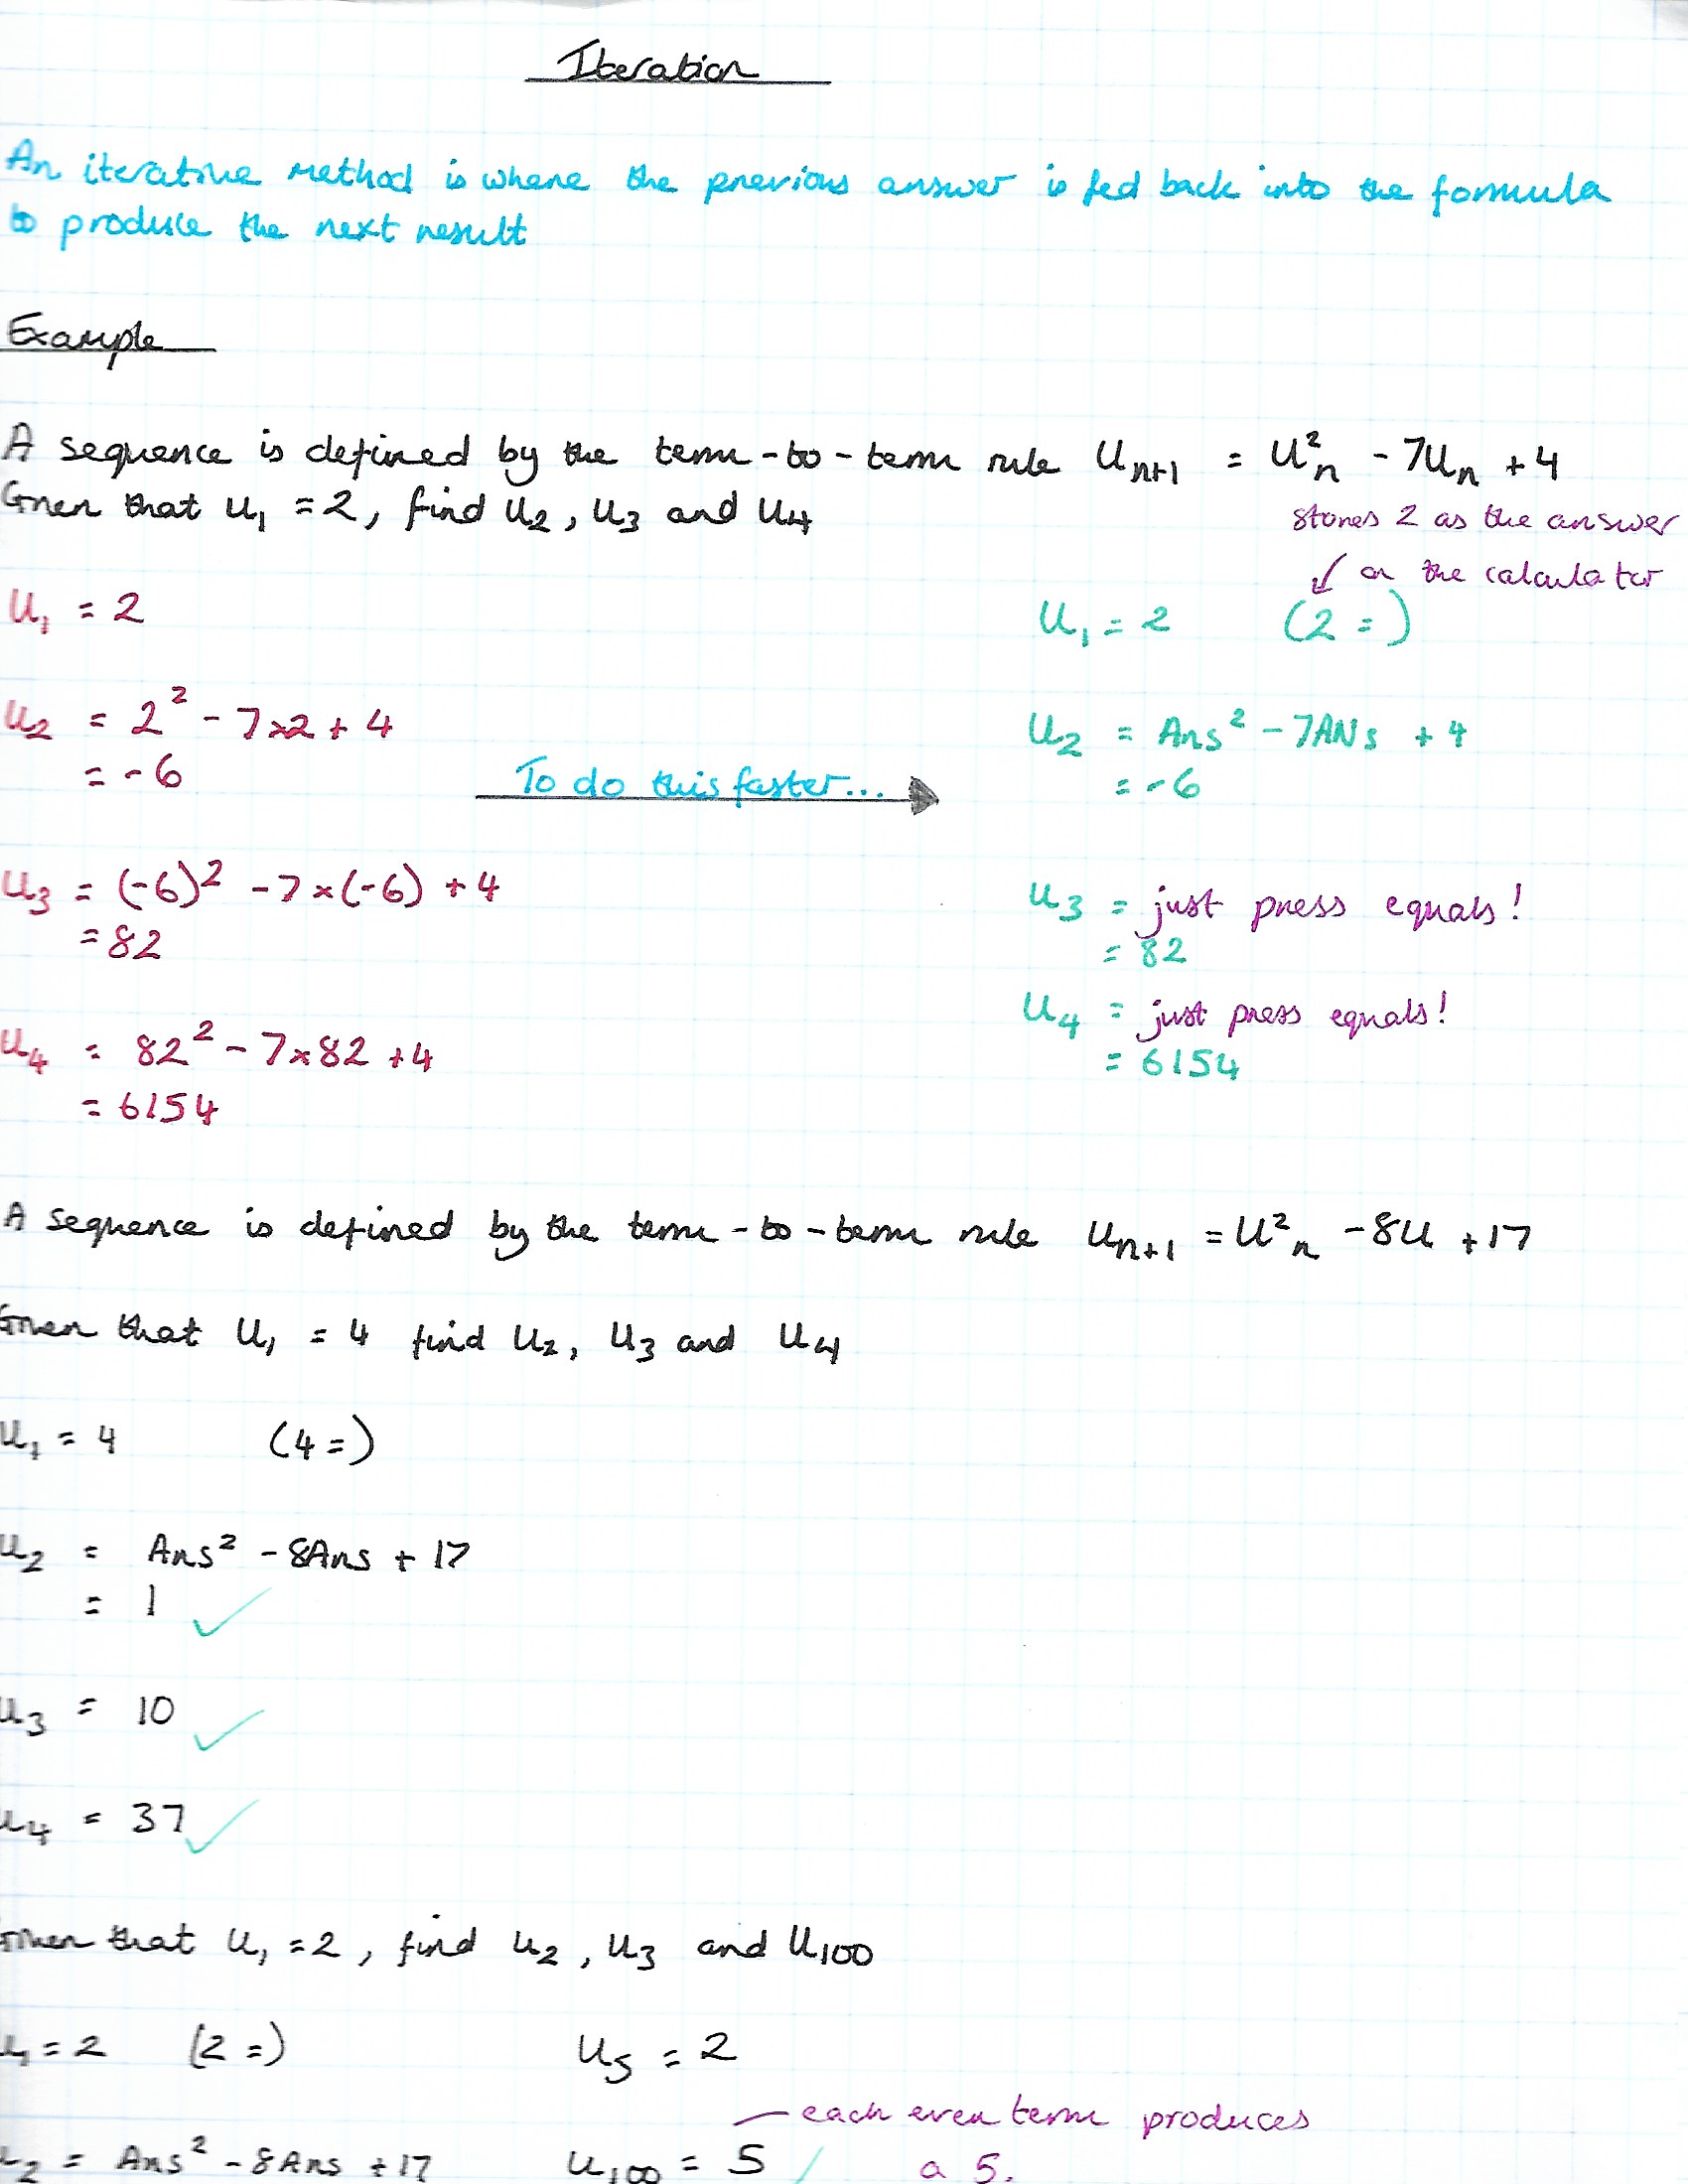 Iteration
An iterative method is where the previous answer is fed back into the formula
to produce the next result
Example
A sequence is defined by the term-to-term rule Uₙ₊₁ = U²ₙ - 7Uₙ + 4
Given that U₁ = 2, find U₂, U₃ and U₄
stores 2 as the answer
↙ on the calculator
U₁ = 2
U₁ = 2 (2 =)
U₂ = 2² - 7×2 + 4
= -6
To do this faster... →
U₂ = Ans² - 7ANs + 4
= -6
U₃ = (-6)² - 7×(-6) + 4
= 82
U₃ = just press equals!
= 82
U₄ = 82² - 7×82 + 4
= 6154
U₄ = just press equals!
= 6154
A sequence is defined by the term-to-term rule Uₙ₊₁ = U²ₙ - 8U + 17
Given that U₁ = 4 find U₂, U₃ and U₄
U₁ = 4 (4 =)
U₂ = Ans² - 8Ans + 17
= 1 ✓
U₃ = 10 ✓
U₄ = 37 ✓
Given that U₁ = 2, find U₂, U₃ and U₁₀₀
U₁ = 2 (2 =)
U₅ = 2
each even term produces
a 5.
U₂ = Ans² - 8Ans + 17
U₁₀₀ = 5 ✓